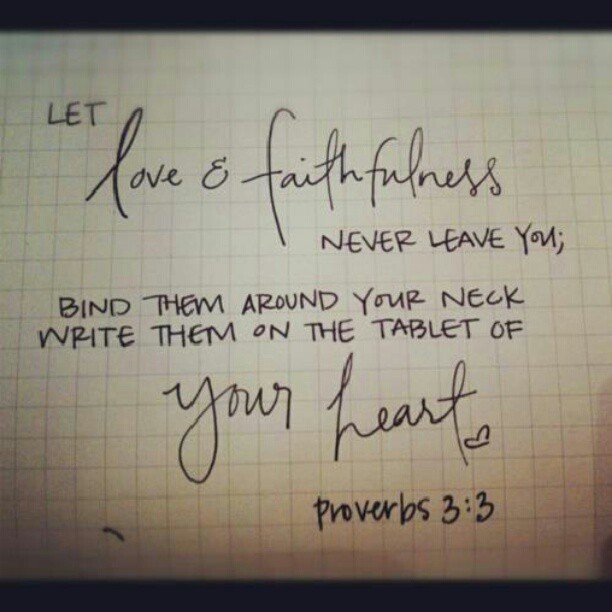 LET
love & faithfulness
NEVER LEAVE YOU;
BIND THEM AROUND YOUR NECK
WRITE THEM ON THE TABLET OF
your heart
proverbs 3:3